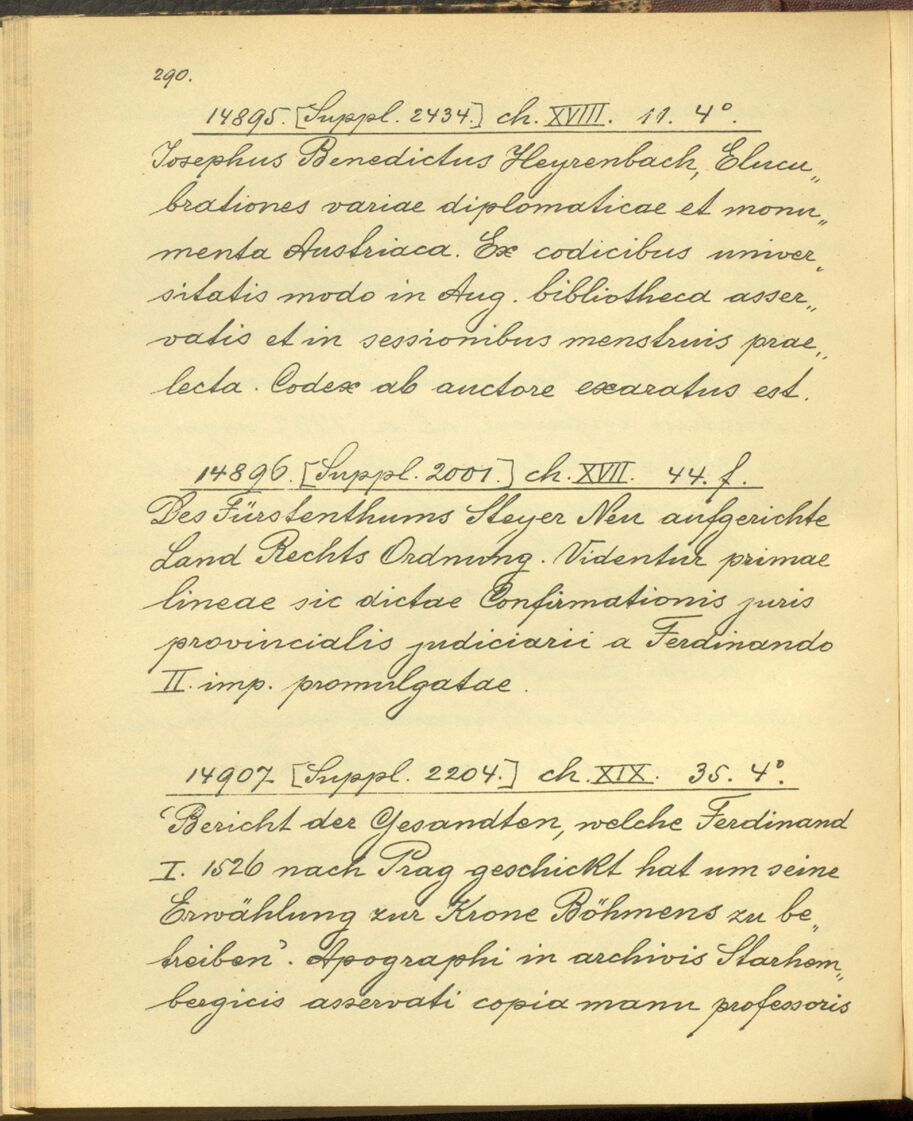 290.
14895. [Suppl. 2434.] ch. XVIII. 11. 4°.
Iosephus Benedictus Heyrenbach, Elucu„
brationes variae diplomaticae et monu„
menta Austriaca. Ex codicibus univer„
sitatis modo in Aug. bibliotheca asser„
vatis et in sessionibus menstruis prae„
lecta. Codex ab auctore exaratus est.
14896. [Suppl. 2001.] ch. XVII. 44. f.
Des Fürstenthums Steyer Neu aufgerichte
Land Rechts Ordnung. Videntur primae
lineae sic dictae Confirmationis juris
provincialis judiciarii a Ferdinando
II. imp. promulgatae.
14907. [Suppl. 2204.] ch. XIX. 35. 4°.
‘Bericht der Gesandten, welche Ferdinand
I. 1526 nach Prag geschickt hat um seine
Erwählung zur Krone Böhmens zu be„
treiben’. Apographi in archivis Starhem„
bergicis asservati copia manu professoris